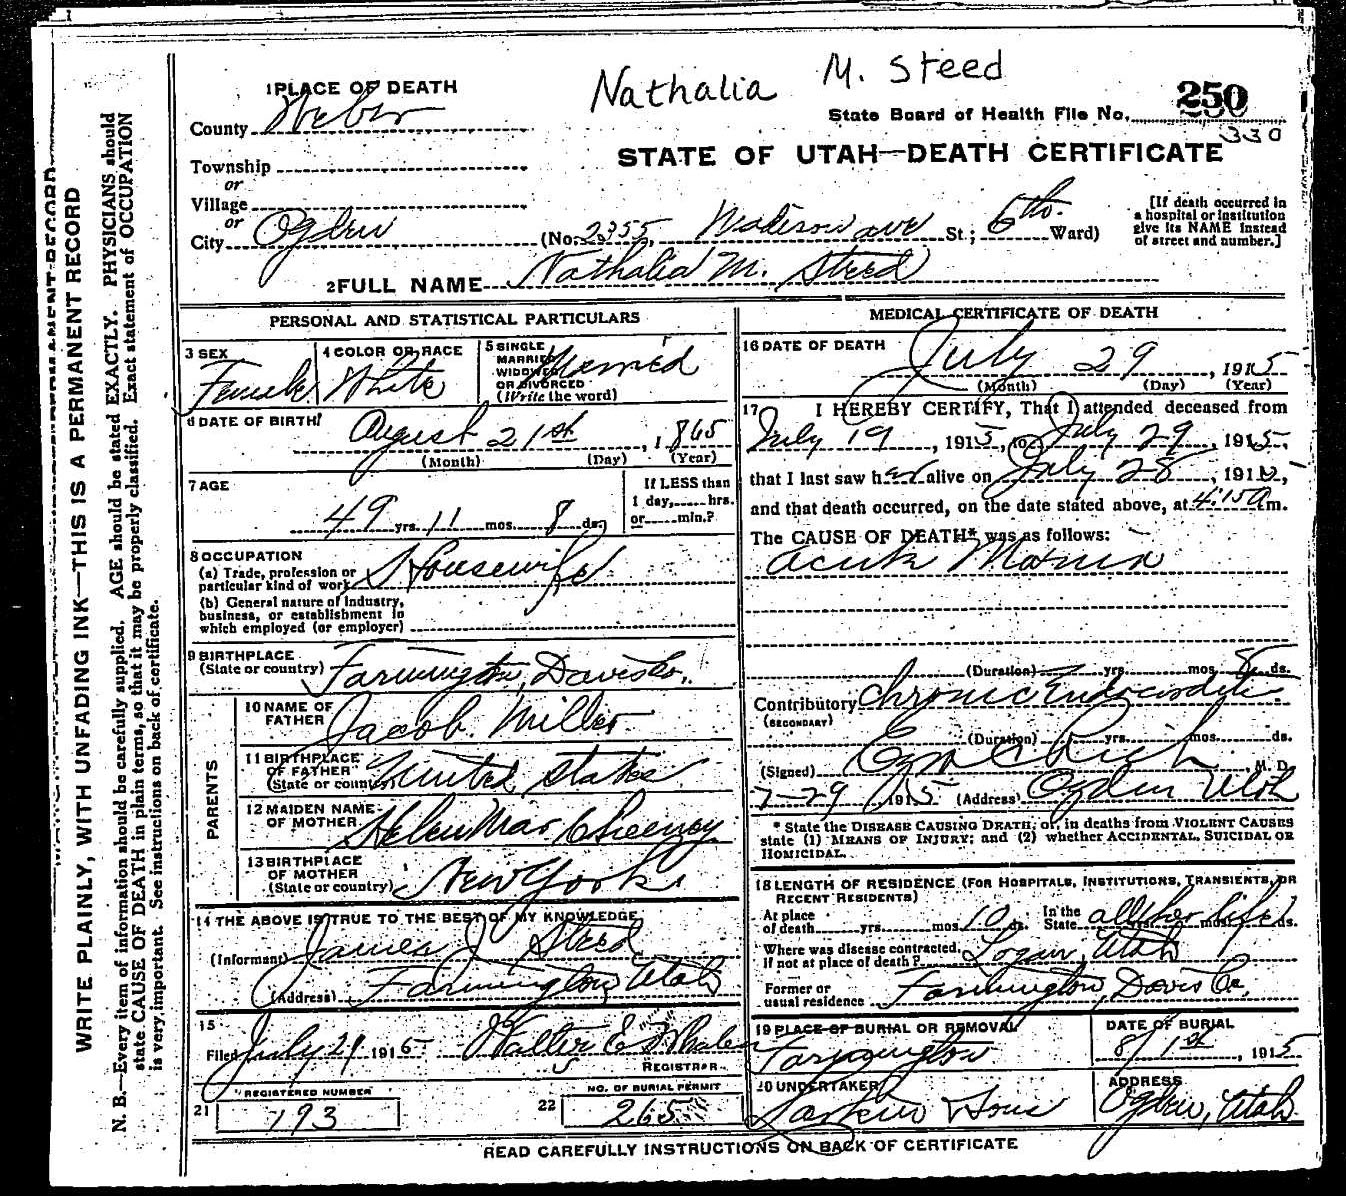 Nathalia M. Steed
1 PLACE OF DEATH
County Weber
State Board of Health File No. 250
330
Township
or
STATE OF UTAH—DEATH CERTIFICATE
Village
or
City Ogden (No. 2355, Madison ave St.; 6th. Ward)
[If death occurred in
a hospital or institution
give its NAME instead
of street and number.]
2 FULL NAME Nathalia M. Steed
PERSONAL AND STATISTICAL PARTICULARS
3 SEX
Female
4 COLOR OR RACE
White
5 SINGLE
MARRIED
WIDOWED
OR DIVORCED
(Write the word)
Married
6 DATE OF BIRTH
August 21st, 1865
(Month) (Day) (Year)
7 AGE
49 yrs. 11 mos. 8 ds.
If LESS than
1 day, hrs.
or min.?
8 OCCUPATION
(a) Trade, profession or
particular kind of work Housewife
(b) General nature of Industry,
business, or establishment in
which employed (or employer)
9 BIRTHPLACE
(State or country) Farmington, Davis Co.
PARENTS
10 NAME OF
FATHER Jacob Miller
11 BIRTHPLACE
OF FATHER
(State or country) United States
12 MAIDEN NAME
OF MOTHER Helen Mar Cheeney
13 BIRTHPLACE
OF MOTHER
(State or country) New York
14 THE ABOVE IS TRUE TO THE BEST OF MY KNOWLEDGE
(Informant) James J. Steed
(Address) Farmington, Utah
15
Filed July 29 1915 Walter E Whalen
REGISTRAR
REGISTERED NUMBER
21 193
NO. OF BURIAL PERMIT
22 265
MEDICAL CERTIFICATE OF DEATH
16 DATE OF DEATH
July 29, 1915
(Month) (Day) (Year)
17 I HEREBY CERTIFY, That I attended deceased from
July 19, 1915, to July 29, 1915,
that I last saw her alive on July 28, 1915,
and that death occurred, on the date stated above, at 4:15 a m.
The CAUSE OF DEATH* was as follows:
Acute Mania
(Duration) yrs. mos. 8 ds.
Contributory Chronic Endocarditis
(SECONDARY)
(Duration) yrs. mos. ds.
(Signed) Ezra C Rich M. D.
7-29, 1915 (Address) Ogden Utah
* State the DISEASE CAUSING DEATH, or, in deaths from VIOLENT CAUSES
state (1) MEANS OF INJURY; and (2) whether ACCIDENTAL, SUICIDAL OR
HOMICIDAL.
18 LENGTH OF RESIDENCE (FOR HOSPITALS, INSTITUTIONS, TRANSIENTS, OR
RECENT RESIDENTS)
At place
of death yrs. mos. 10 ds.
In the
State all her life yrs. mos. ds.
Where was disease contracted,
If not at place of death? Logan, Utah
Former or
usual residence Farmington, Davis Co,
19 PLACE OF BURIAL OR REMOVAL
Farmington
DATE OF BURIAL
8/1st, 1915
20 UNDERTAKER
Larkin & Sons
ADDRESS
Ogden, Utah
READ CAREFULLY INSTRUCTIONS ON BACK OF CERTIFICATE
WRITE PLAINLY, WITH UNFADING INK—THIS IS A PERMANENT RECORD
N. B.—Every item of information should be carefully supplied. AGE should be stated EXACTLY. PHYSICIANS should
state CAUSE OF DEATH in plain terms, so that it may be properly classified. Exact statement of OCCUPATION
is very important. See instructions on back of certificate.